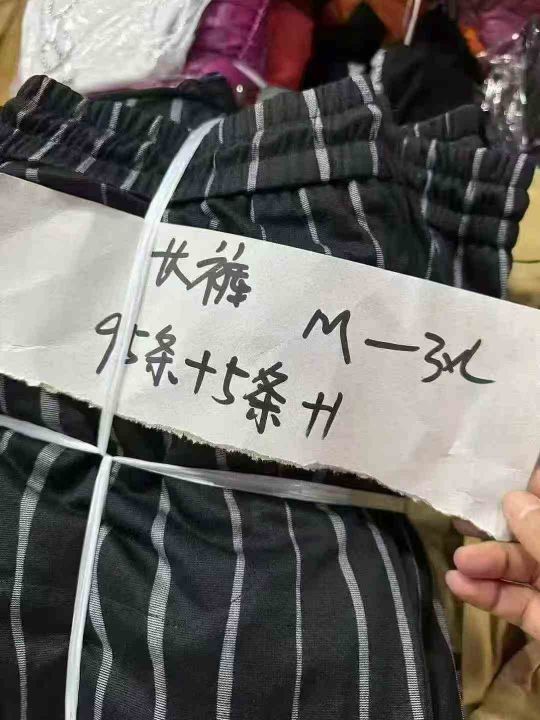 女裤
M—3XL
95条+5条H